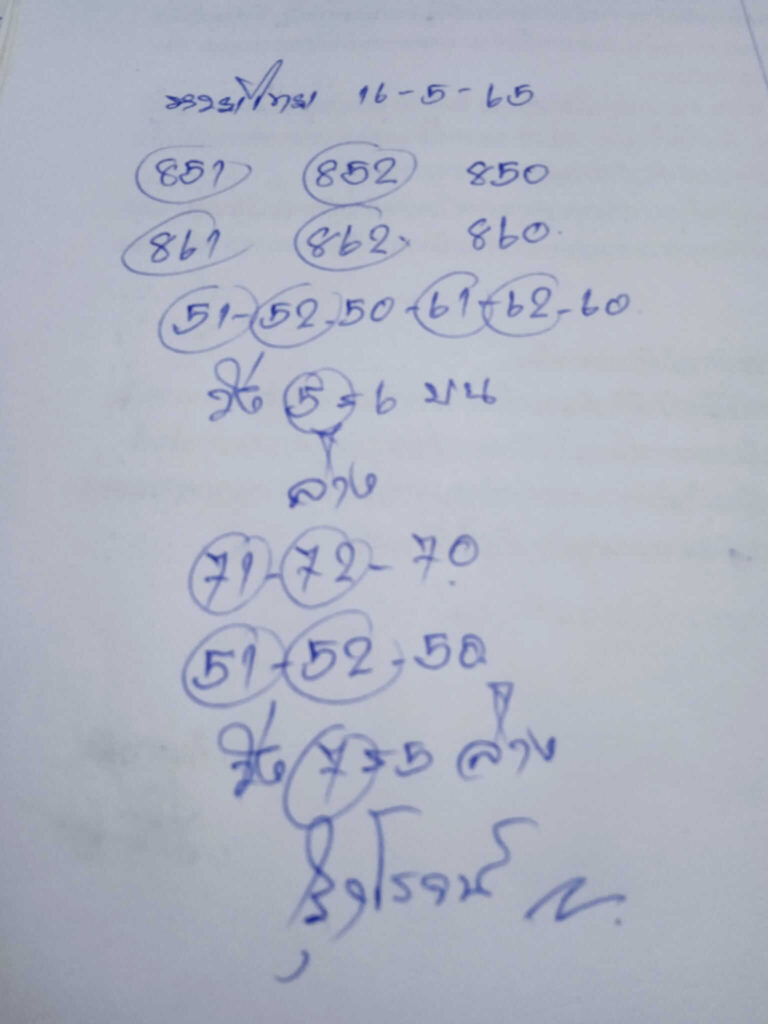 หวยไทย 16-5-65
851 852 850
861 862 860
51-52-50-61-62-60
วิ่ง 5-6 บน
ล่าง
71-72-70
51-52-50
วิ่ง 7-5 ล่าง